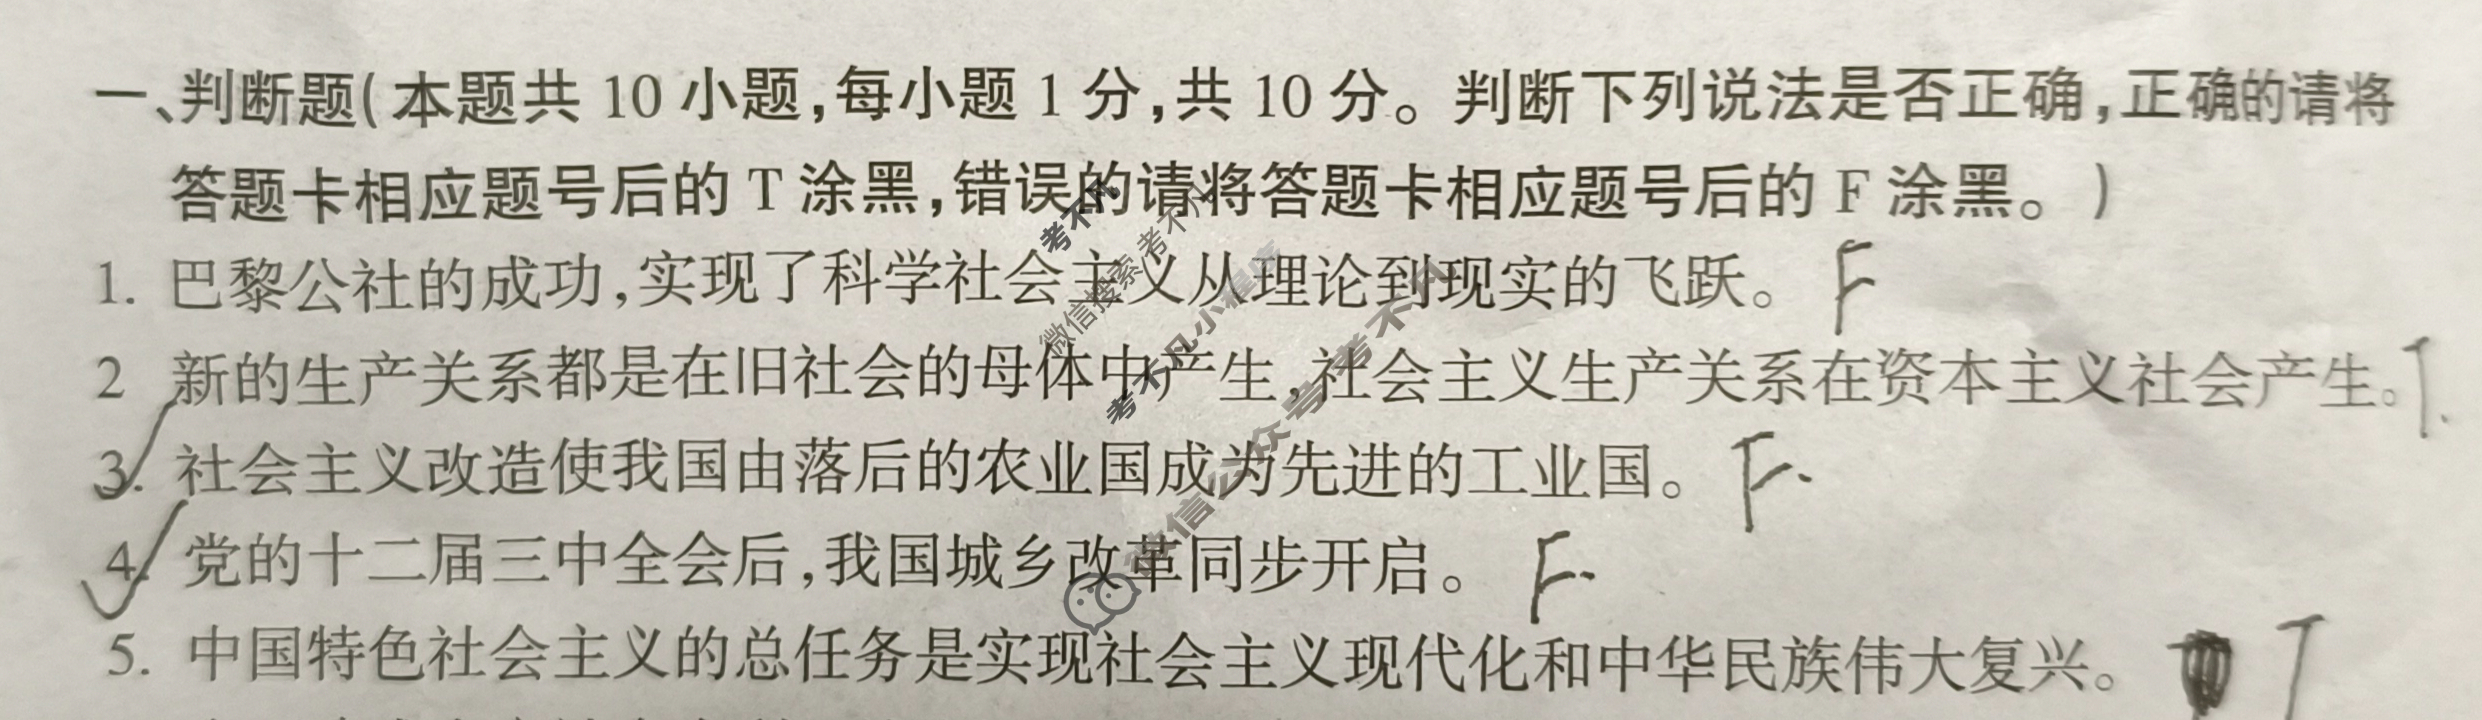 一、判断题(本题共 10 小题,每小题 1 分,共 10 分。判断下列说法是否正确,正确的请将
答题卡相应题号后的 T 涂黑,错误的请将答题卡相应题号后的 F 涂黑。)
1. 巴黎公社的成功,实现了科学社会主义从理论到现实的飞跃。 F
2 新的生产关系都是在旧社会的母体中产生,社会主义生产关系在资本主义社会产生。 T.
3. 社会主义改造使我国由落后的农业国成为先进的工业国。 F.
4. 党的十二届三中全会后,我国城乡改革同步开启。 F.
5. 中国特色社会主义的总任务是实现社会主义现代化和中华民族伟大复兴。 T
考不凡
微信搜索 考不凡
考不凡小程序
微信公众号 考不凡